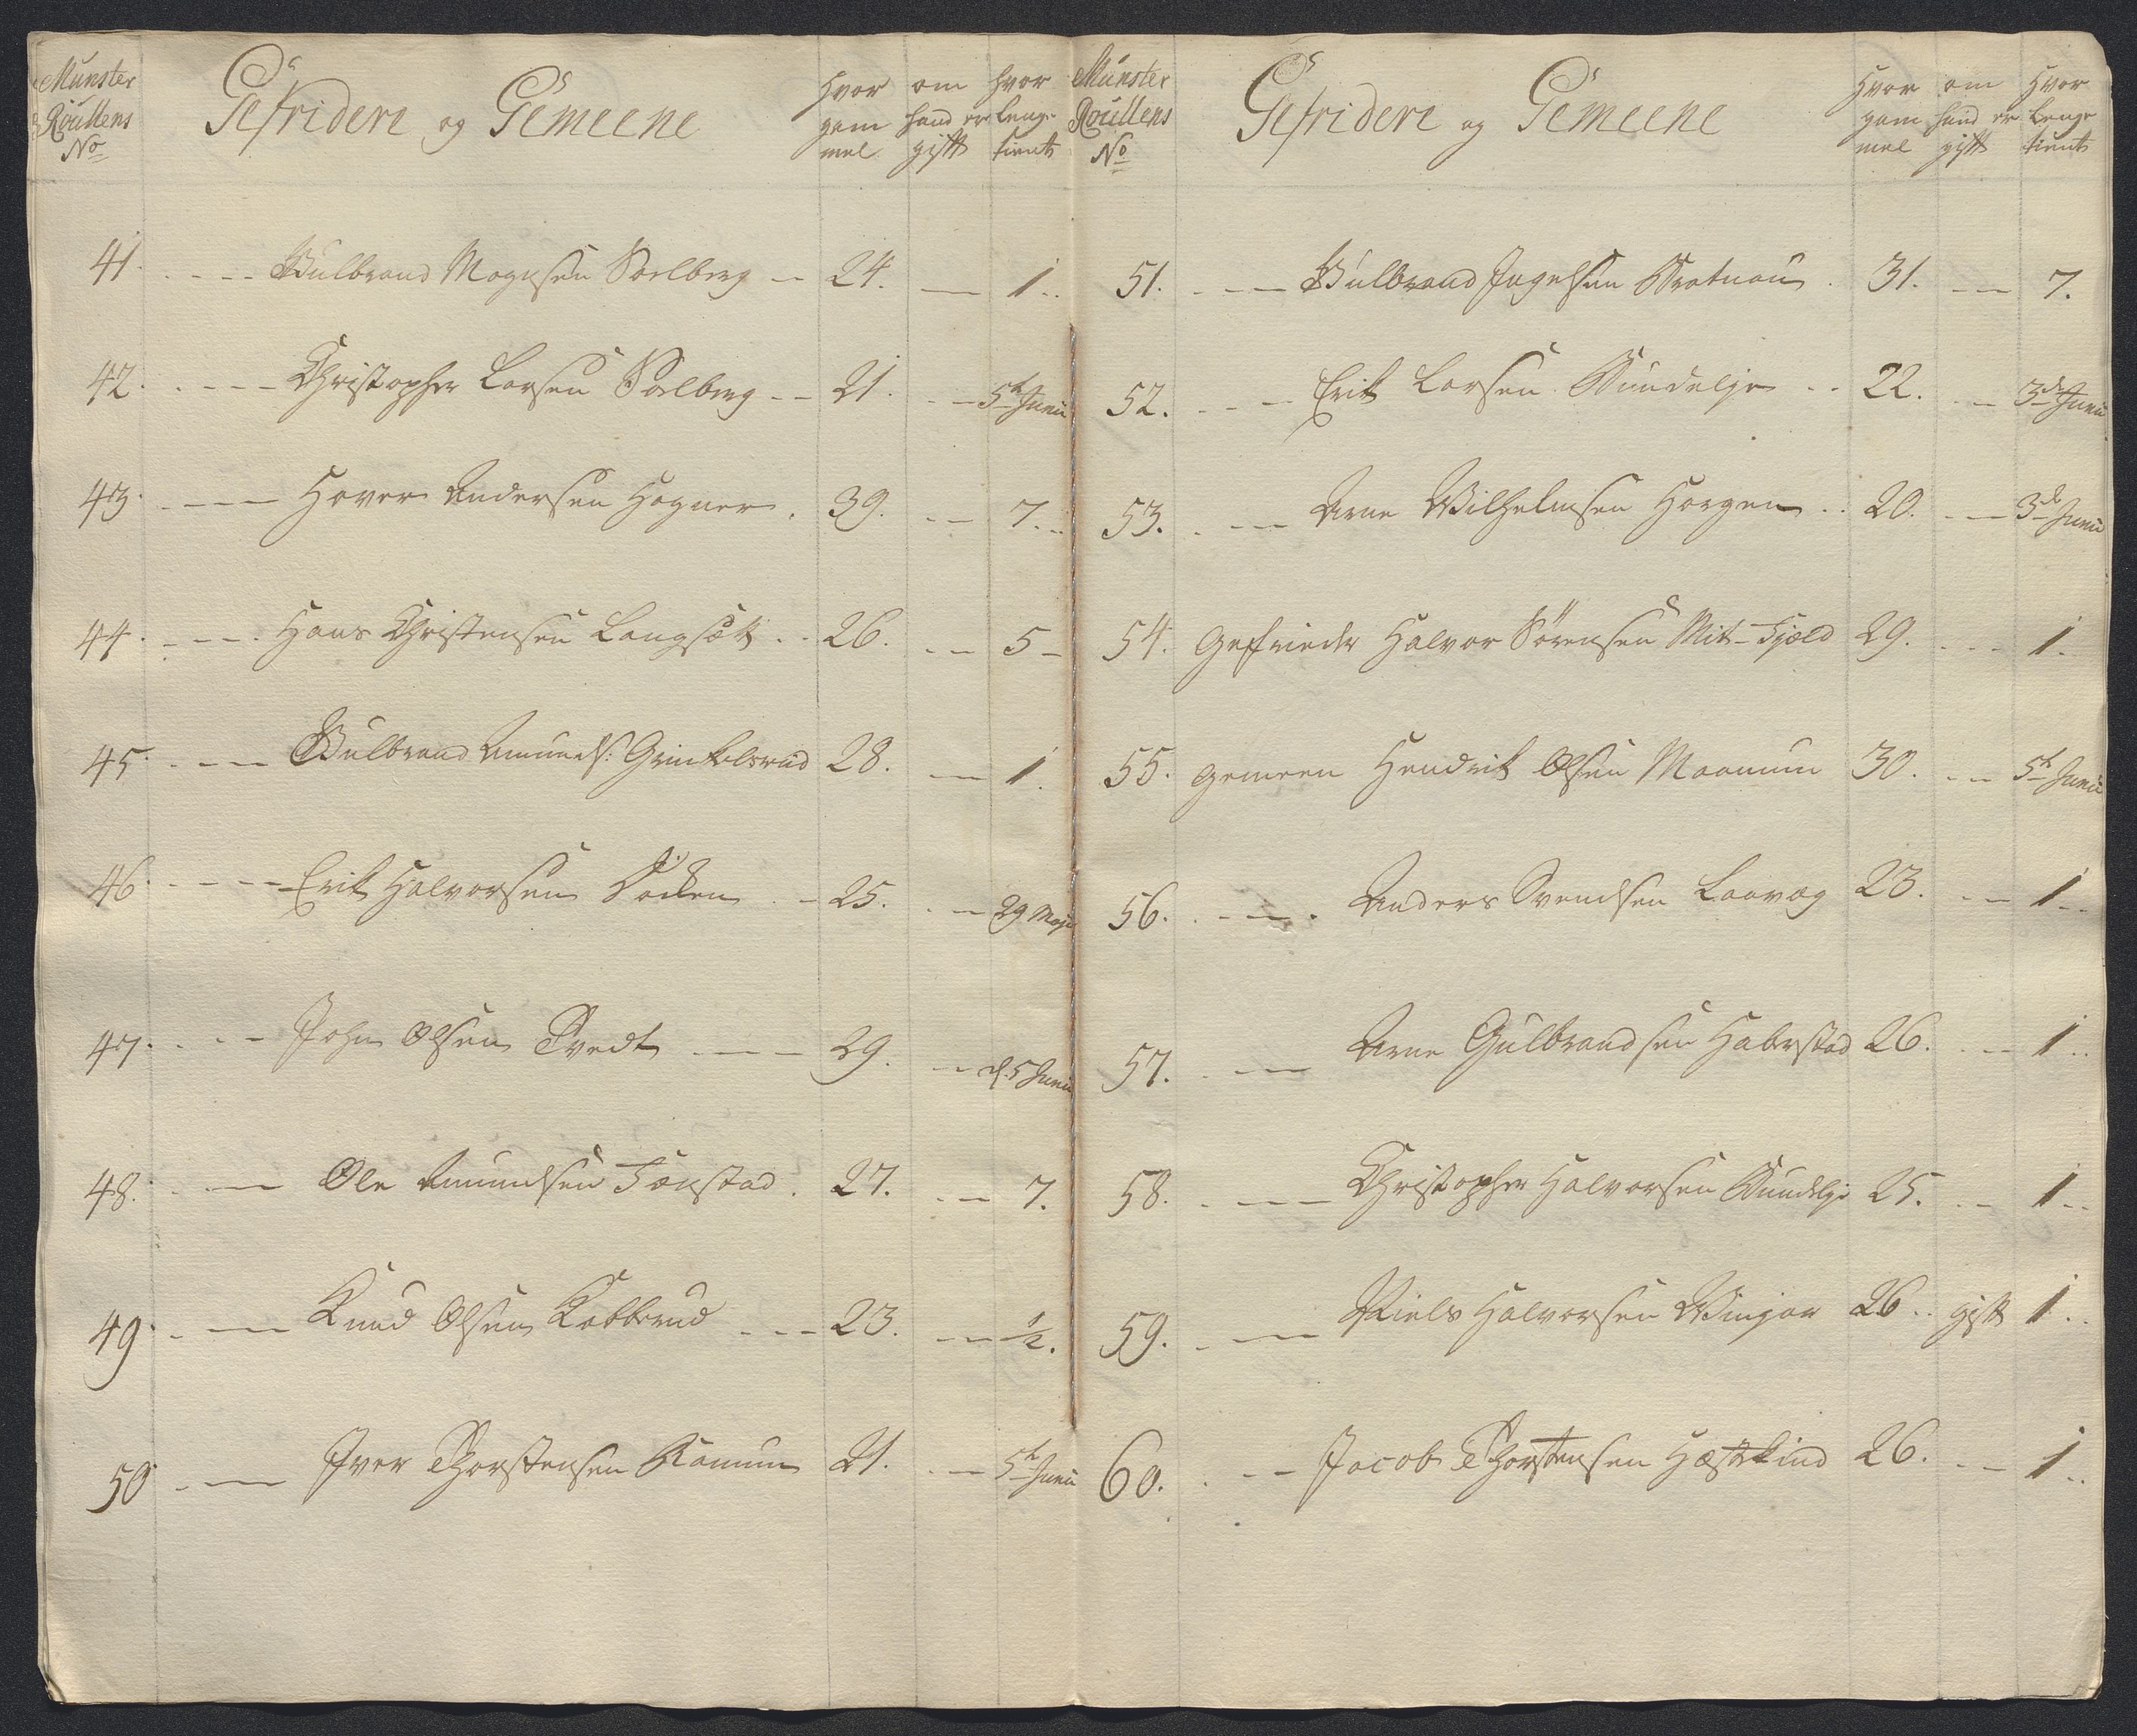 Munster Roullens No
Gefridere og Gemeene
Hvor gam mel
om hand er gift
hvor lenge tient
41. Gulbrand Mognsen Soelberg 24. 1.
42. Christopher Larsen Soelberg 21. 5te Junii
43. Hover Andersen Hagner 39. 7.
44. Hans Christensen Langsæt 26. 5
45. Gulbrand Amunds: Grinkelsrud 28. 1.
46. Erik Halvorsen 25. 29 Maji
47. John Olsen Tvedt 29. d. 5 Junii
48. Ole Amundsen Fonstad 27. 7.
49. Knud Olsen Kobberud 23. 1/2.
50 Iver Thorstensen Ramum 21. 5te Junii
Munster Roullens No
Gefridere og Gemeene
Hvor gam mel
om hand er gift
Hvor lenge tient
51. Gulbrand Ingelsen 31. 7.
52. Erik Larsen Gundelje 22. 3de Junii
53. Arne Wilhelmsen Horgen 20. 3de Junii
54. Gefrieder Halvor Sörensen Mit-Fjeld 29. 1.
55. Gemeen Hendrik Olsen Moamum 30. 5te Junii
56. Anders Svendsen Laavog 23. 1
57. Arne Gulbrandsen Haberstad 26. 1
58. Christopher Halvorsen Gundelje 25. 1
59. Niels Halvorsen Wingar 26. gift 1
60. Jacob Thorstensen Hæstekind 26. 1